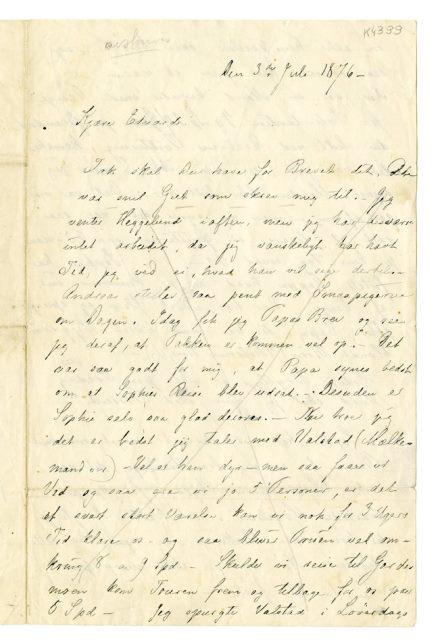 K4399
Den 3die Juli 1876 -
Kjære Edvard.
Tak skal Du have for Brevet dit, Det
var snil Grib som skrev mig til. Jeg
venter Heggelund i aften, men jeg har desværre
intet arbeidet, da jeg vanskeligt har havt
Tid, jeg ved ei, hvad han vil sige dertil.
Andrea steller saa pent med Smaapigerne
om Dagen. Idag fik jeg Papas Brev og seer
jeg deraf, at Pakken er kommen vel op. - Det
var saa godt for mig, at Papa synes bedst
om at Sophies Reise blev udsat. - Desuden er
Sophie selv saa glad derover. - Nu tror jeg
det er bedst jeg taler med Valstad (Mælke-
mand ) - Vel er han dyr - men saa faaer vi
Ved og saa ere vi jo 5 Personer, er det
et svært stort Værelse kan vi nok for 3 Ugers
Tid klare os - og saa bliver Prisen vel om-
kring 8 a 9 Spd - Skulde vi reise til Garder-
moen kom Touren frem og tilbage for os paa
5 Spd - Jeg spurgte Valstad i Løverdags